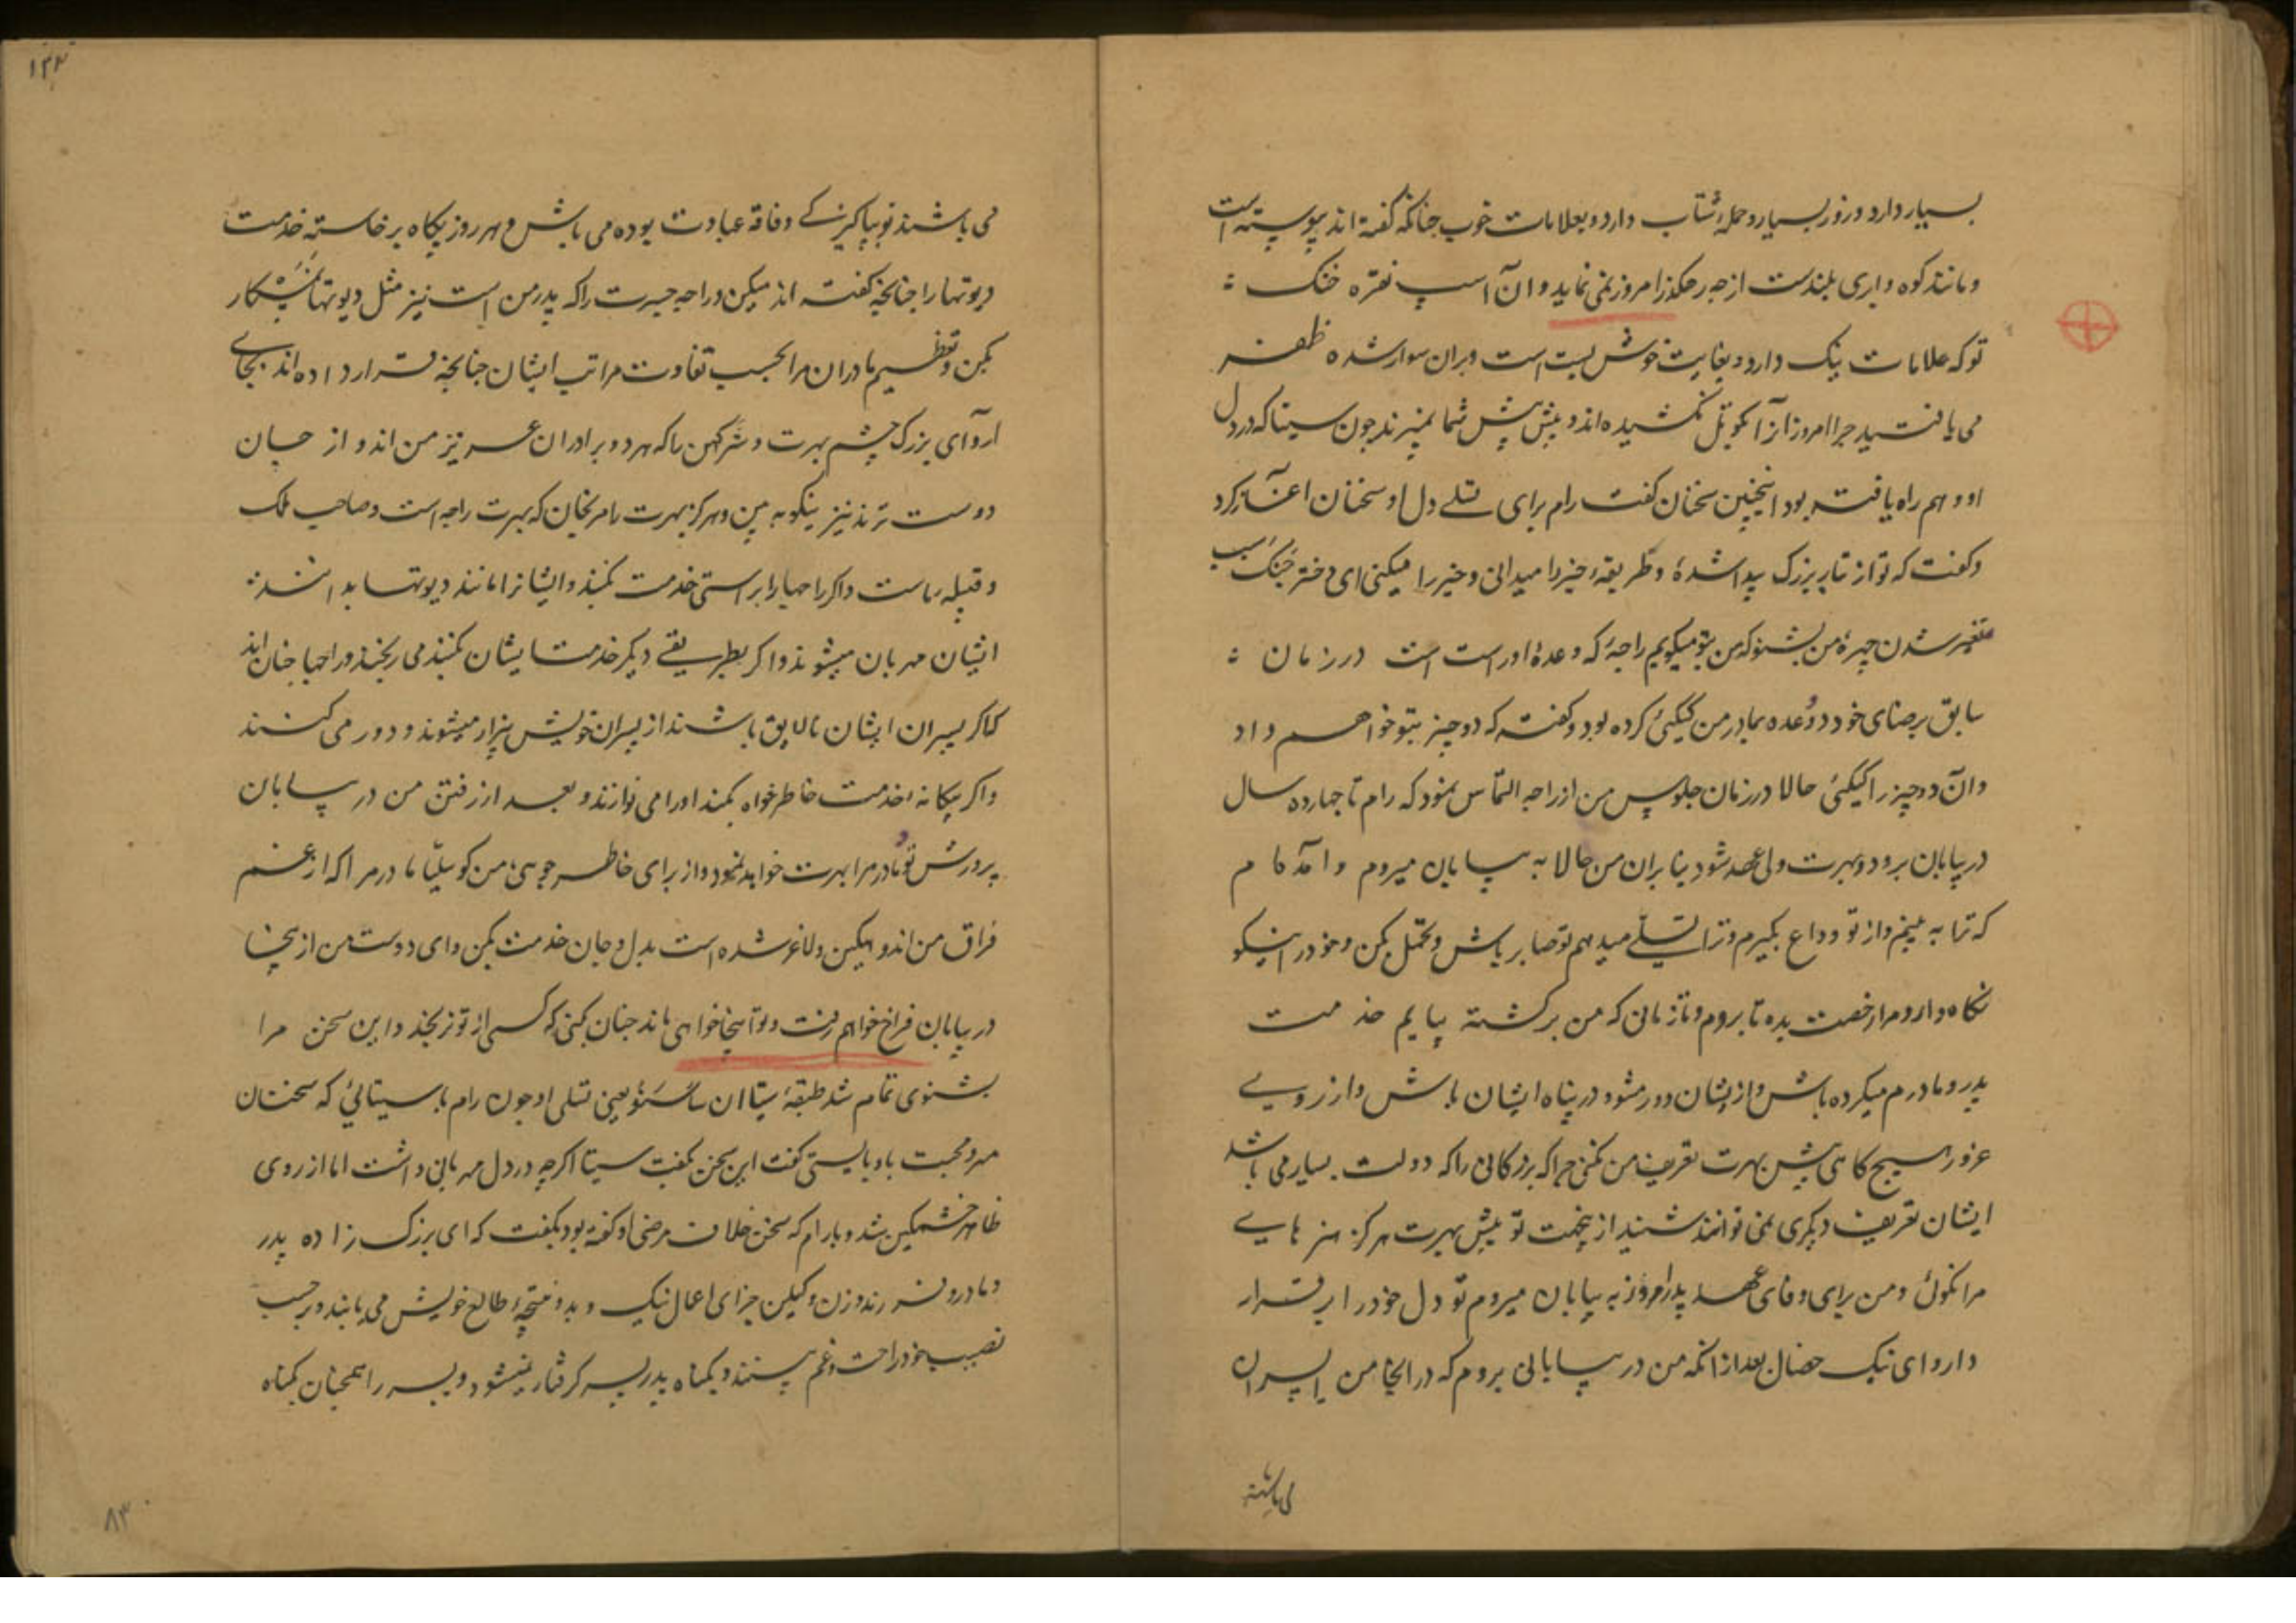 بسیار دارد و زور بسیار و حمله شتاب دارد و بعلامات خوب چنانکه گفته اند پیوسته است
و مانند کوه و ابری بلندست از چه رهگذر امروز نمی نماید و آن اسپ نقره خنک
تو که علامات نیک دارد و بغایت خوش است و بران سوار شده ظفر
می یافتید چرا امروز آنرا کوتل نکشیده اند و پیش پیش شما نمیبرند چون سیتا که در دل
او وهم راه یافته بود اینچنین سخنان گفت رام برای تسلی دل او سخنان آغاز کرد
و گفت که تو از تبار بزرگ پیدا شدهٔ و طریقهٔ خیر را میدانی و خیر را میکنی ای دختر جنک سبب
متغیر شدن چهرهٔ من بشنو که من بتو میگویم راجهٔ که وعدهٔ او راست است در زمان
سابق برضای خود دو وعده بمادر من کیکئی کرده بود و گفته که دو چیز بتو خواهم داد
و آن دو چیز را کیکئی حالا در زمان جلوس من از راجه التماس نمود که رام تا چهارده سال
در بیابان برود و بهرت ولی عهد شود بنابران من حالا به بیابان میروم و آمده ام
که ترا به بینم و از تو وداع بگیرم و ترا تسلی میدهم تو صابر باش و تحمل بکن و خود را نیکو
نگاه دار و مرا رخصت بده تا بروم و تا زمانی که من برگشته بیایم خدمت
پدر و مادرم میکرده باش و از ایشان دور مشو و در پناه ایشان باش و از روی
غرور هیچ گاهی پیش بهرت تعریف من نکنی چرا که بزرگانی را که دولت بسیار می باشد
ایشان تعریف دیگری نمی توانند شنید ازینجهت تو پیش بهرت هرگز هنرهای
مرا نگوئی و من برای وفای عهد پدر امروز به بیابان میروم تو دل خود را برقرار
دار و ای نیک خصال بعد از آنکه من در بیابانی بروم که در آنجا من
می باشند
۱۲۳
می باشند تو بپاکیزگی و فاقه عبادت بوده می باش و هر روز پگاه برخاسته خدمت
دیوتها را چنانچه گفته اند میکن و راجه جسرت را که پدر من است نیز مثل دیوتها
بکن و تعظیم مادران مرا بحسب تفاوت مراتب ایشان چنانچه قرار داده اند بجای
آر و ای بزرگ چشم بهرت و شترگهن را که هر دو برادران عزیز من اند و از جان
دوست ترند نیز نیکو به بین و هرگز بهرت را مرنجان که بهرت راجه است و صاحب ملک
و قبیله ماست و اگر راجها را براستی خدمت کنند و ایشانرا مانند دیوتها بدانند
ایشان مهربان میشوند و اگر بطریقی دیگر خدمت ایشان کنند می رنجند و راجها چنان اند
که اگر پسران ایشان نالایق باشند از پسران خویش بیزار میشوند و دور می کنند
و اگر بیگانه خدمت خاطرخواه بکند او را می نوازند و بعد از رفتن من در بیابان
پرورش تو و مادر مرا بهرت خواهد نمود و از برای خاطر جوئی من کوسلیا مادر مرا که از غم
فراق من اندوهگین و لاغر شده است بدل و جان خدمت بکن و ای دوست من از ینجا
در بیابان فراخ خواهم رفت و تو اینجا خواهی ماند چنان کنی که کسی از تو نرنجد و این سخن مرا
بشنوی تمام شد طبقهٔ سیتا یعنی تسلی او چون رام با سیتائی که سخنان
مهر و محبت باو بایستی گفت این سخن بگفت سیتا اگرچه در دل مهربانی داشت اما از روی
ظاهر خشمگین شد و با رام که سخن خلاف مرضی او گفته بود بگفت که ای بزرگ زاده پدر
و مادر و فرزند و زن و لیکن جزای اعمال نیک و بد و نتیجهٔ طالع خویش می یابند و برحسب
نصیب خود راحت و غم بینند و بگناه پدر پسر گرفتار نمیشود و پسر را همچنان بگناه
۸۳